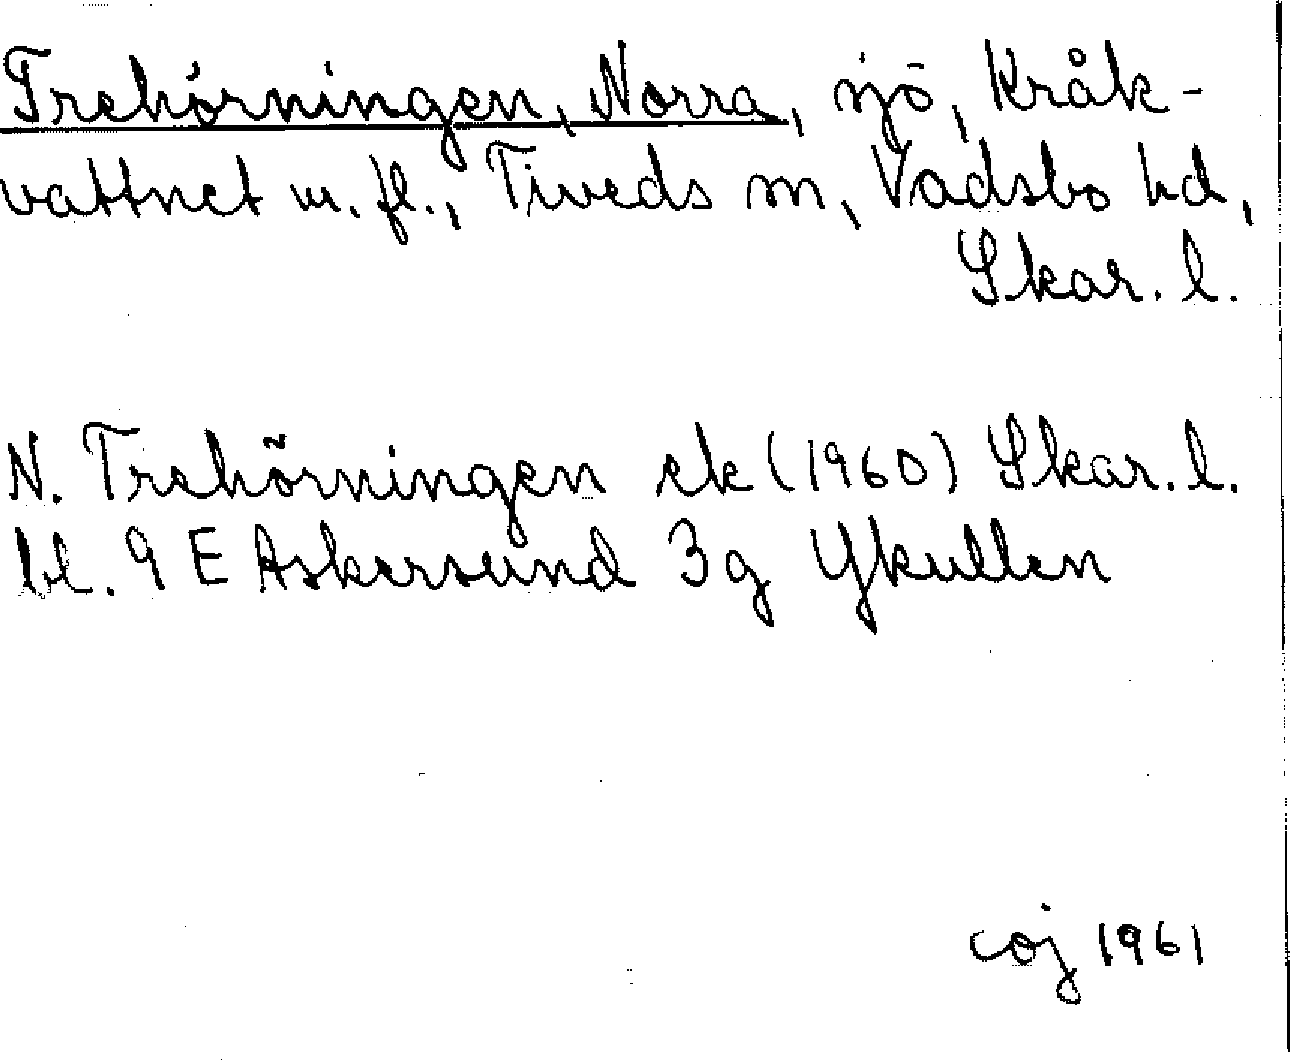 Trehörningen, Norra, sjö, Kråk-
vattnet m. fl., Tiveds sn, Vadsbo hd,
Skar. l.
N. Trehörningen ek (1960) Skar. l.
bl. 9 E Askersund 3g Ykullen
coj 1961